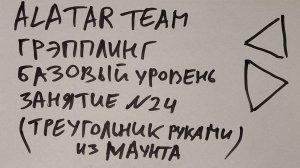 ALATAR TEAM
ГРЭППЛИНГ
БАЗОВЫЙ УРОВЕНЬ
ЗАНЯТИЕ №24
(ТРЕУГОЛЬНИК РУКАМИ)
ИЗ МАУНТА